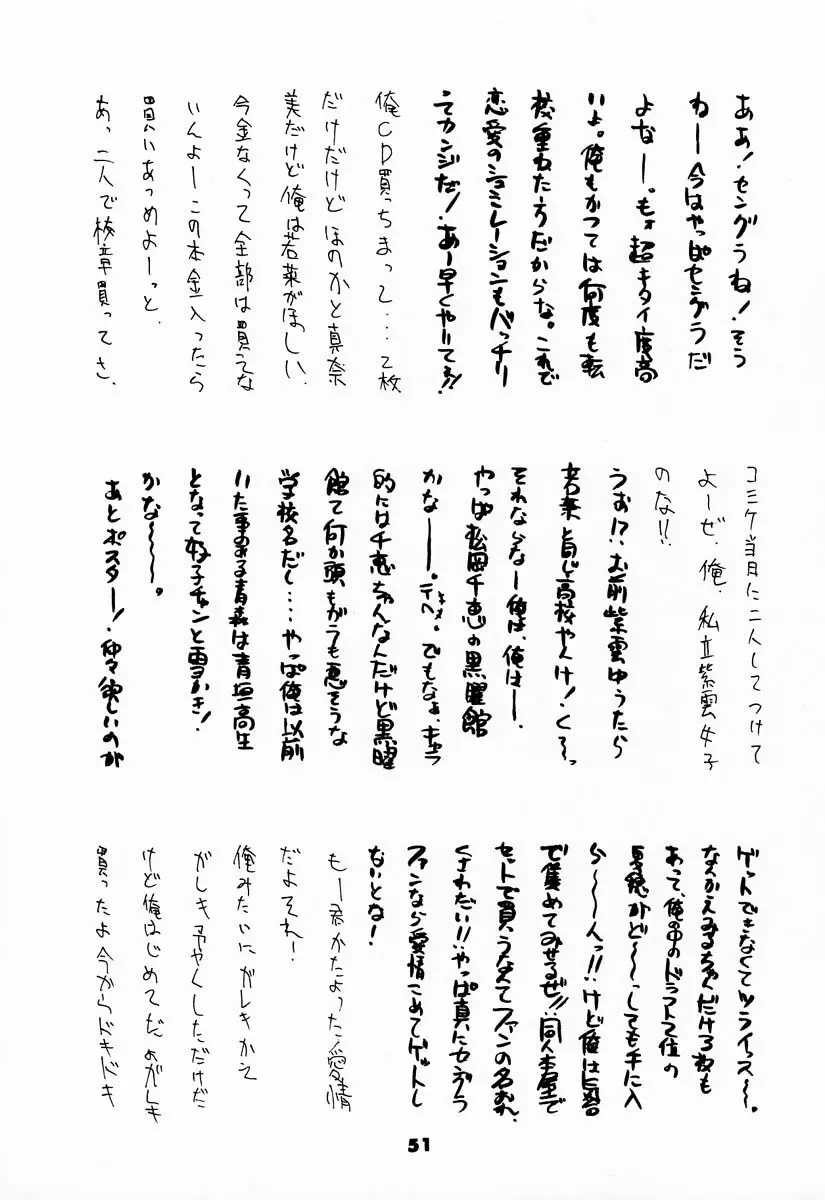 ああ！セングラね！そう
ねー今はやっぱセングラだ
よなー。もォ超キタイ度高
いよ。俺もかつては何度も転
校重ねた方だからな。これで
恋愛のシュミレーションもバッチリ
てカンジだ！あー早くやりてぇ！
俺CD買っちまって…2枚
だけだけど ほのかと真奈
美だけど俺は若菜がほしい、
今金なくって全部は買えな
いんよーこの本金入ったら
買いあつめよーっと、
あっ、二人で校章買ってさ、
コミケ当日に二人してつけて
よーぜ、俺、私立紫雲女子
のな!!
うお!?お前紫雲ゆうたら
若菜と同じ高校やんけ！く〜っ
それならなー俺は、俺はー、
やっぱ松岡千恵の黒曜館
かなー。テヘ。でもなぁ、キャラ
的には千恵ちゃんなんだけど黒曜
館て何か頭もガラも悪そうな
学校名だし…やっぱ俺は以前
いた事のある青森は青垣高生
となって好子チャンと雪かき！
かな〜〜。
あとポスター！仲々欲しいのが
ゲットできなくてツライっス〜。
なんかえみるちゃんだけ3枚も
あって、俺の中のドラフト2位の
夏穂がど〜〜っしても手に入
ら〜〜んっ!!けど俺は自習
で集めてみせるぜ!!同人本屋で
セットで買うなんてファンの名おれ、
くさわたい!!やっぱ真にセングラ
ファンなら愛情こめてゲットし
ないとな！
もー君かたよった愛情
だよそれー！
俺みたいにガレキかえ
ガレキ予やくしただけだ
けど俺はじめてだよガレキ
買ったよ今からドキドキ
51